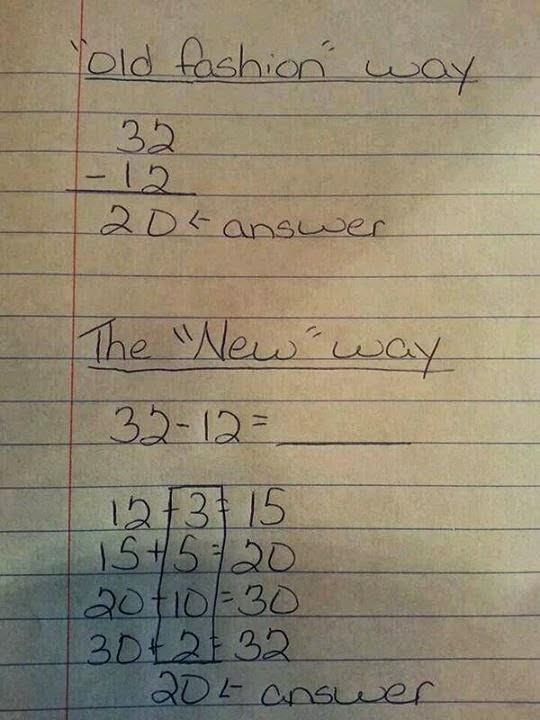 "old fashion" way
32
-12
20 ← answer
The "New" way
32-12=______
12+3=15
15+5=20
20+10=30
30+2=32
20 ← answer